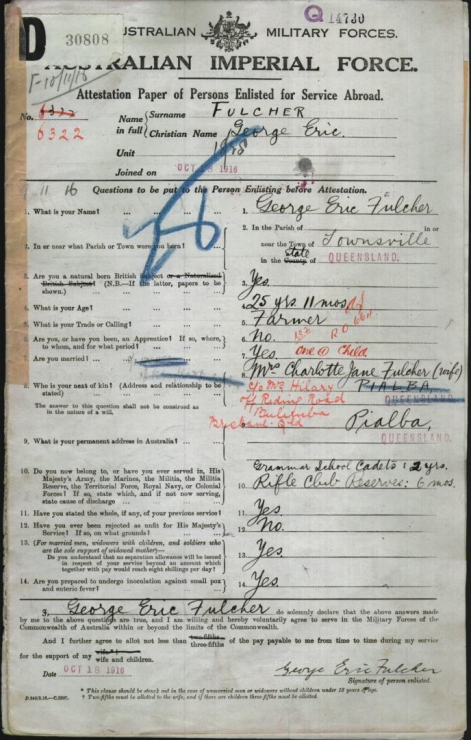 Q 14730
D 30808
AUSTRALIAN MILITARY FORCES.
AUSTRALIAN IMPERIAL FORCE.
Attestation Paper of Persons Enlisted for Service Abroad.
No. 6322
6322
Name in full { Surname FULCHER
Christian Name George Eric.
Unit
Joined on OCT 18 1916
9 11 16 Questions to be put to the Person Enlisting before Attestation.
1. What is your Name? ... 1. George Eric Fulcher
2. In or near what Parish or Town were you born? ... 2. In the Parish of in or
near the Town of Townsville
in the County of State QUEENSLAND.
3. Are you a natural born British Subject or a Naturalized British Subject? (N.B.—If the latter, papers to be shown.) 3. Yes.
4. What is your Age? ... 4. 25 yrs 11 mos
5. What is your Trade or Calling? ... 5. Farmer
6. Are you, or have you been, an Apprentice? If so, where, to whom, and for what period? 6. No.
7. Are you married? ... 7. Yes. One Child
8. Who is your next of kin? (Address and relationship to be stated) 8. Mrs Charlotte Jane Fulcher (wife)
PIALBA
QUEENSLAND.
c/o Mrs Hilary
off Riding Road
Bulimba
Brisbane Qld
The answer to this question shall not be construed as in the nature of a will.
9. What is your permanent address in Australia? ... 9. Pialba,
QUEENSLAND.
10. Do you now belong to, or have you ever served in, His Majesty's Army, the Marines, the Militia, the Militia Reserve, the Territorial Force, Royal Navy, or Colonial Forces? If so, state which, and if not now serving, state cause of discharge 10. Grammar School Cadets: 2 yrs.
Rifle Club Reserves: 6 mos.
11. Have you stated the whole, if any, of your previous service? 11. Yes.
12. Have you ever been rejected as unfit for His Majesty's Service? If so, on what grounds? 12. No.
13. (For married men, widowers with children, and soldiers who are the sole support of widowed mother)—
Do you understand that no separation allowance will be issued in respect of your service beyond an amount which together with pay would reach eight shillings per day? 13. Yes.
14. Are you prepared to undergo inoculation against small pox and enteric fever? 14. Yes.
I, George Eric Fulcher do solemnly declare that the above answers made
by me to the above questions are true, and I am willing and hereby voluntarily agree to serve in the Military Forces of the
Commonwealth of Australia within or beyond the limits of the Commonwealth.
And I further agree to allot not less than two-fifths three-fifths of the pay payable to me from time to time during my service
for the support of my wife
wife and children.
Date OCT 18 1916
George Eric Fulcher
Signature of person enlisted.
* This clause should be struck out in the case of unmarried men or widowers without children under 18 years of age.
† Two-fifths must be allotted to the wife, and if there are children three-fifths must be allotted.